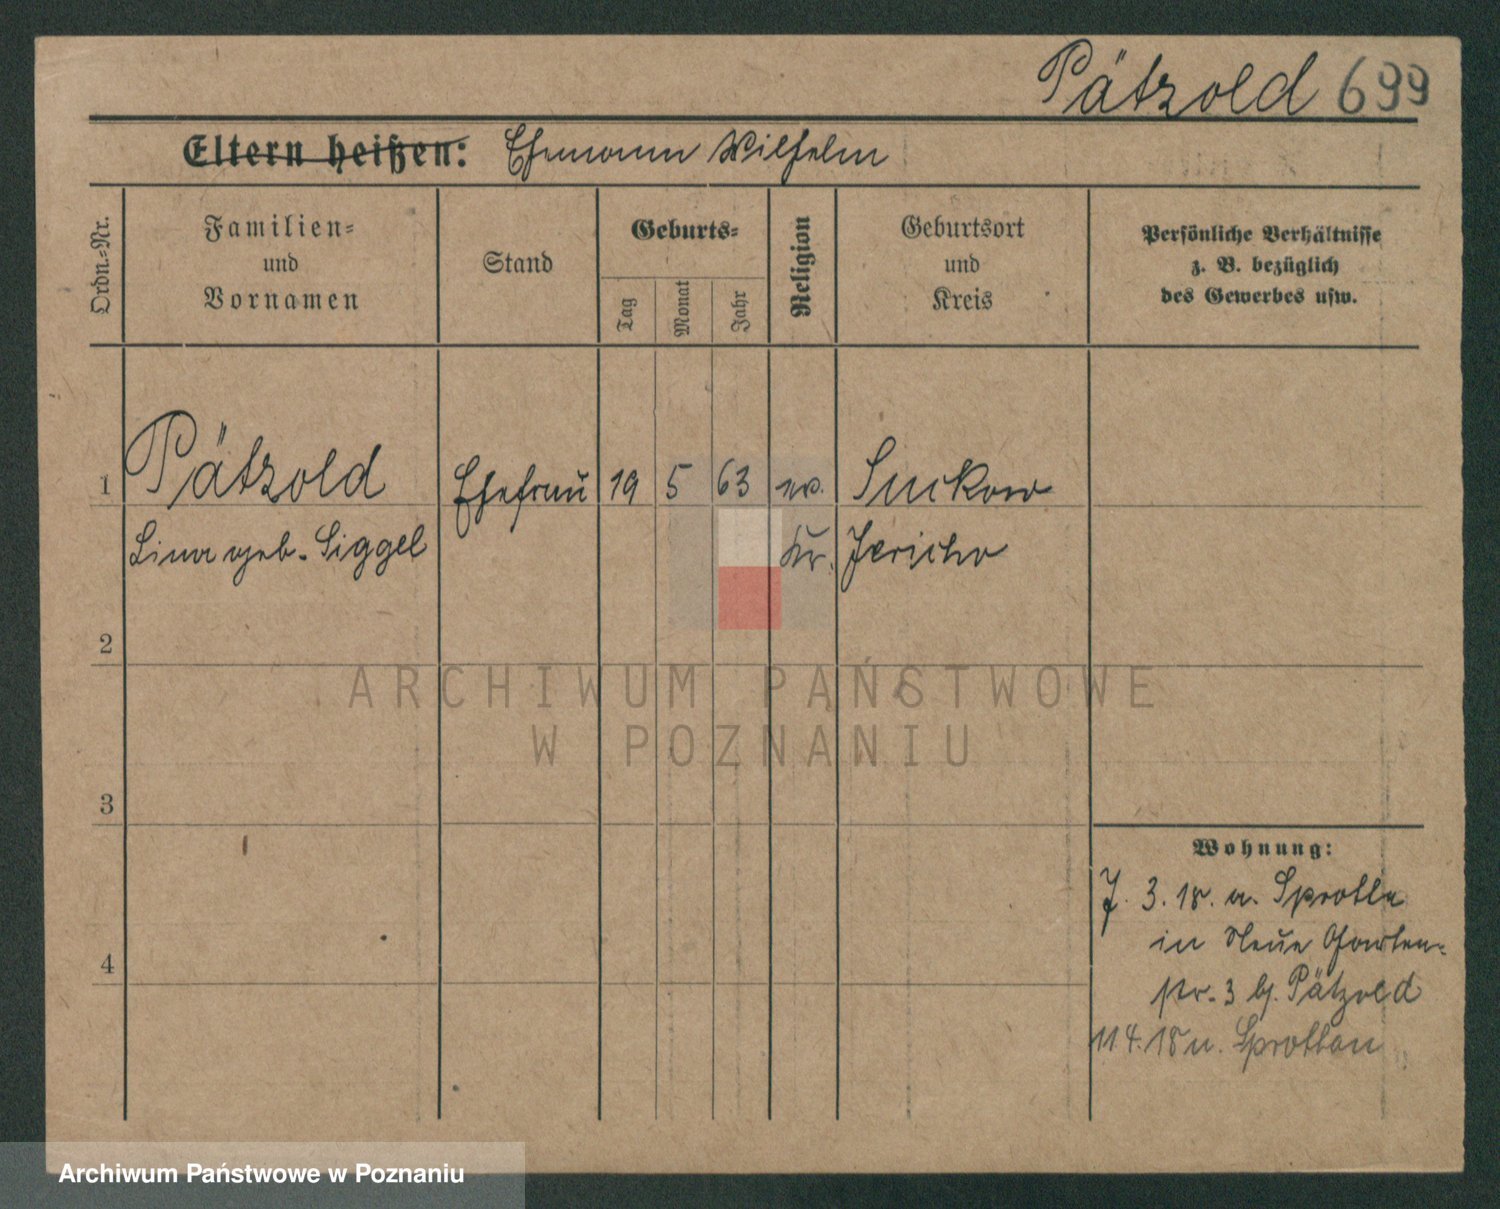 Pätzold 699
Eltern heißen: Ehemann Wilhelm
Ordn.-Nr.
Familien-
und
Vornamen
Stand
Geburts-
Tag
Monat
Jahr
Religion
Geburtsort
und
Kreis
Persönliche Verhältnisse
z. B. bezüglich
des Gewerbes usw.
1 Pätzold Ehefrau 19 5 63 ev. Suckow
Lina geb. Siggel Kr. Jericho
2
ARCHIWUM PAŃSTWOWE
W POZNANIU
3
Wohnung:
7. 3. 18. a. Sprotta
in Neue Garten-
4
str. 3 b. Pätzold
11 4. 18 n. Sprottau
Archiwum Państwowe w Poznaniu